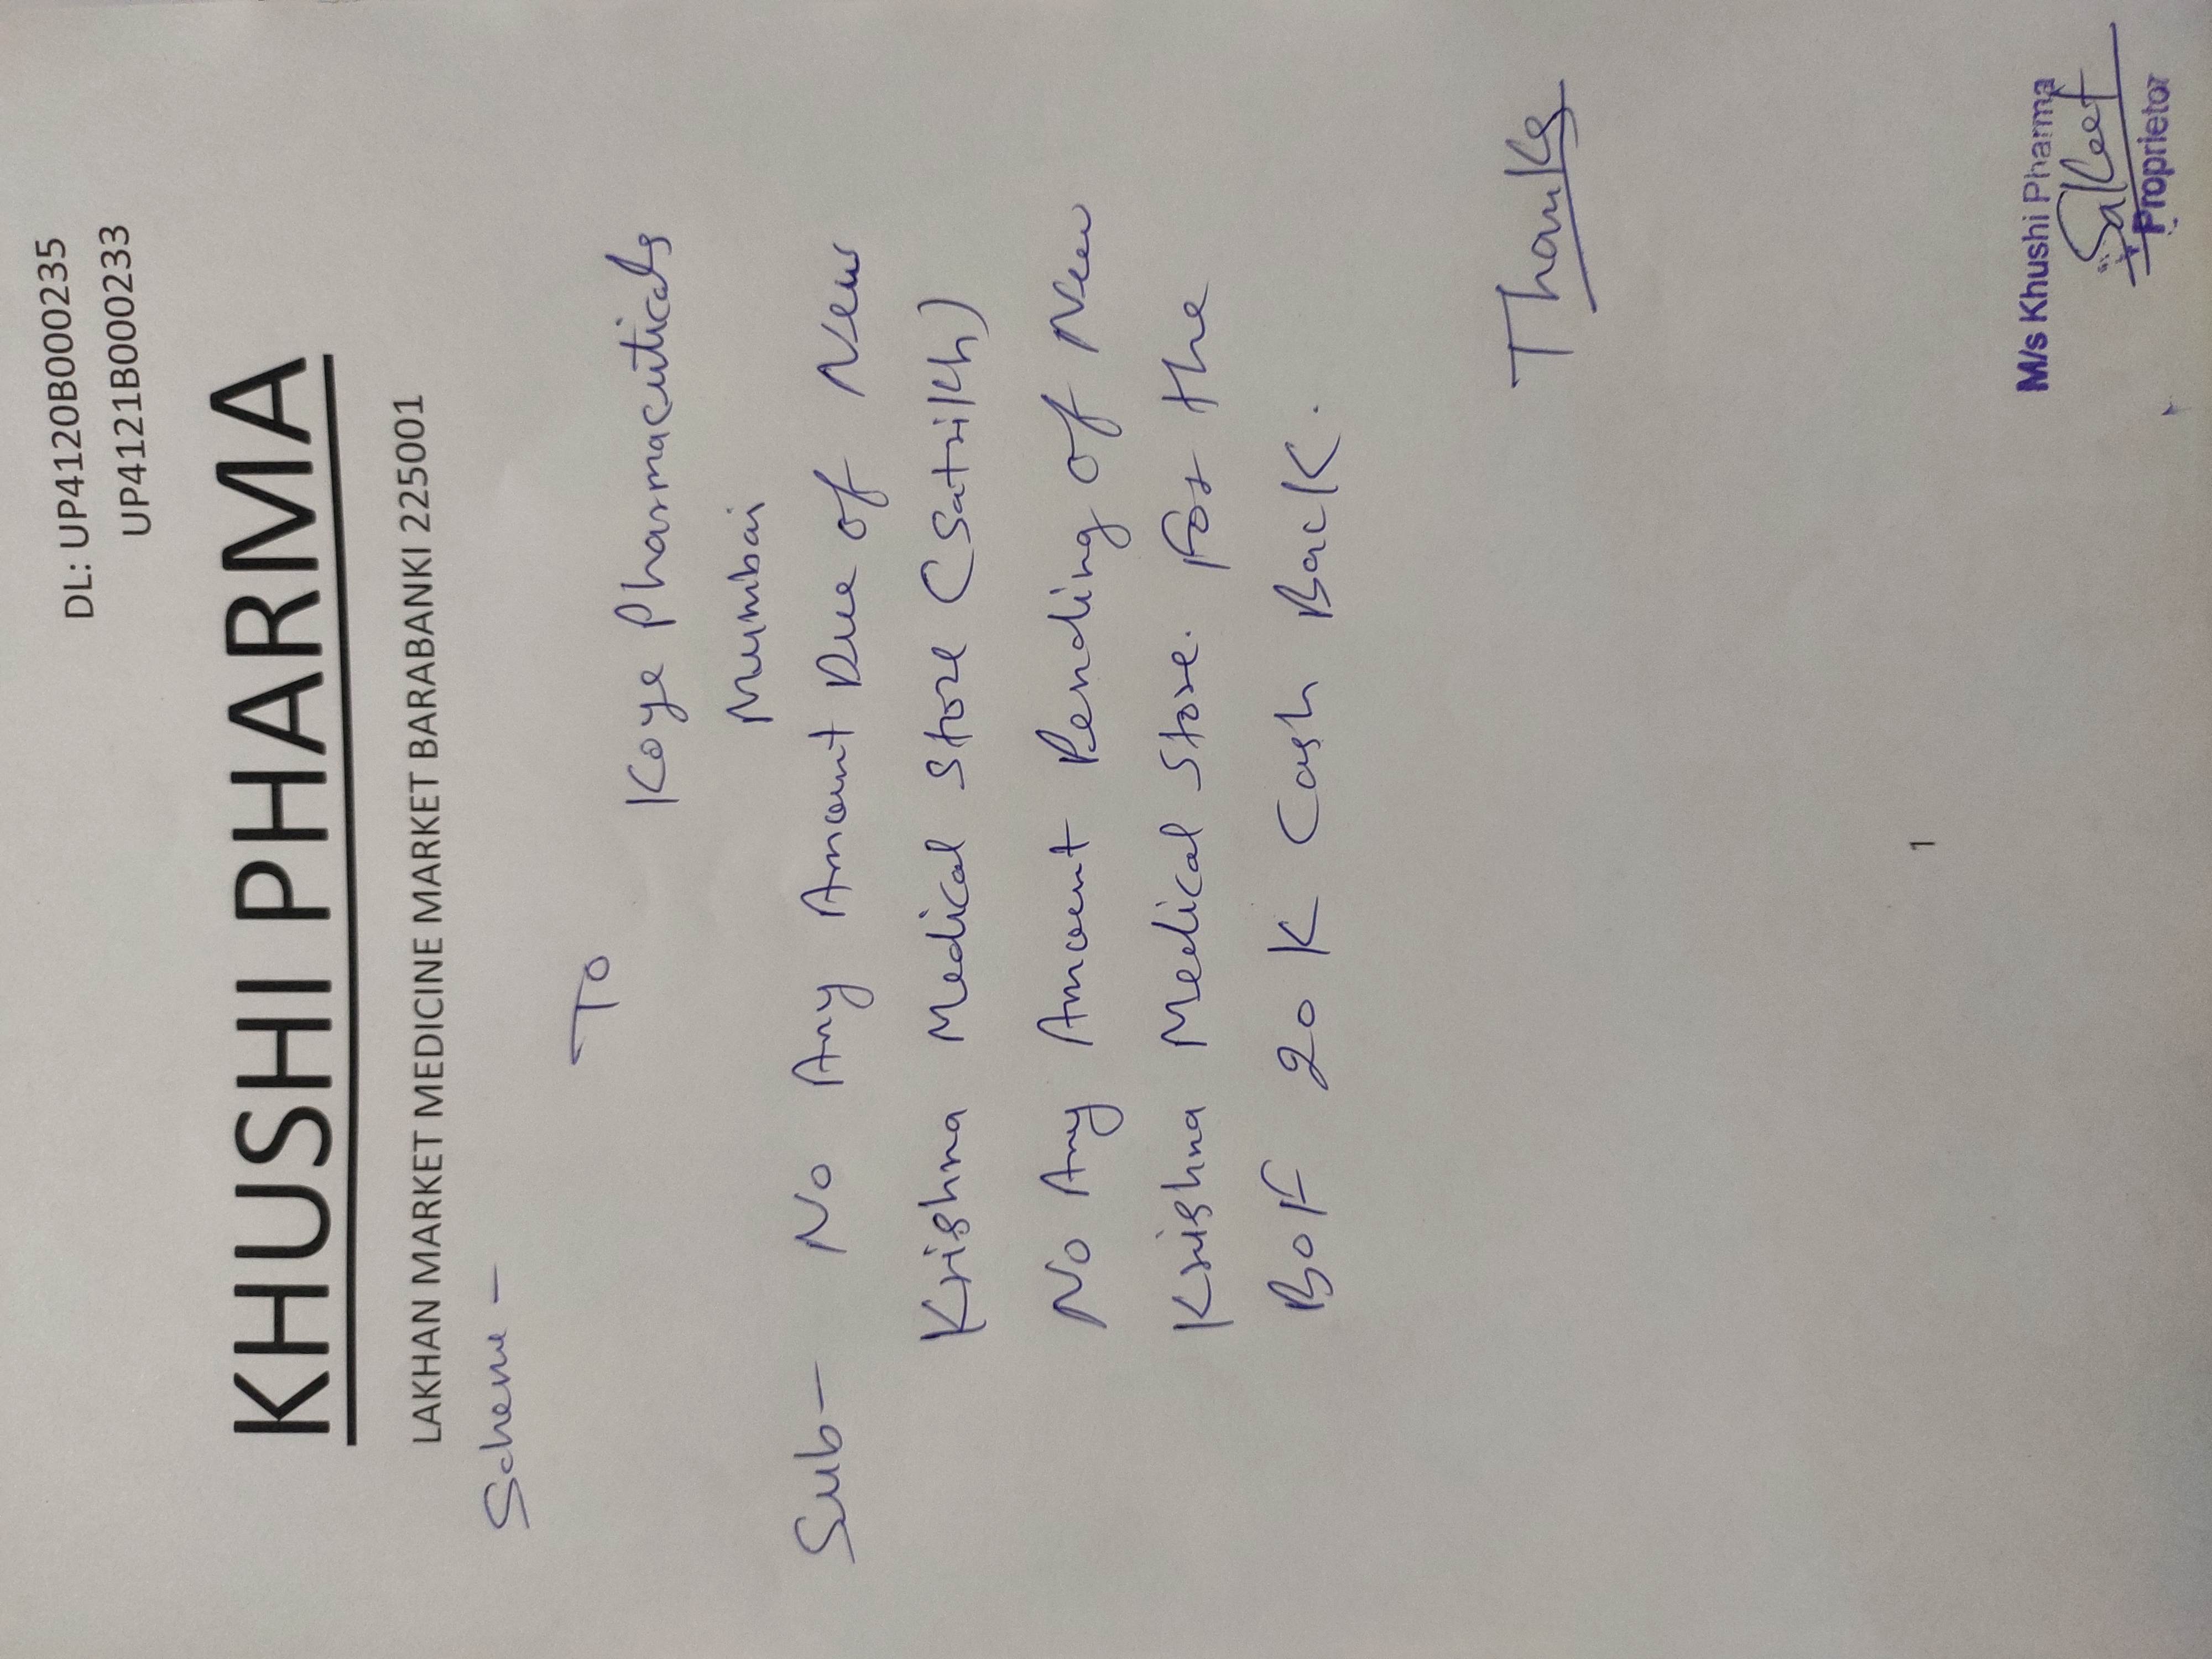 DL: UP4120B000235
UP4121B000233
KHUSHI PHARMA
LAKHAN MARKET MEDICINE MARKET BARABANKI 225001
Scheme -
To
Koye Pharmacuticals
Mumbai
Sub- No Any Amount Due of New
Krishna Medical Store (Satrikh)
No Any Amount Pending of New
Krishna Medical Store. For the
BOF 20 K Cash Back.
Thanks
1
M/s Khushi Pharma
Saket
Proprietor